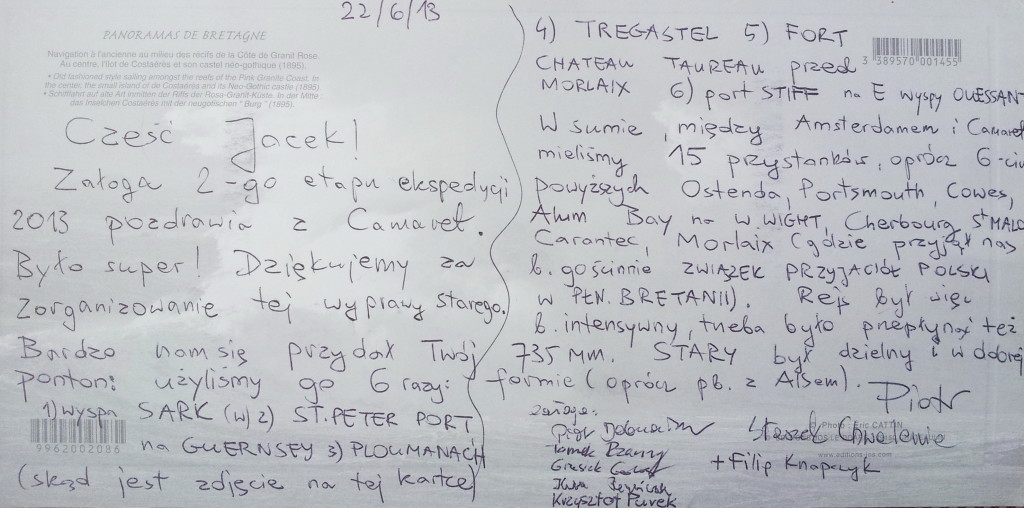 22/6/13
PANORAMAS DE BRETAGNE
Navigation à l'ancienne au milieu des récifs de la Côte de Granit Rose.
Au centre, l'îlot de Costaérès et son castel néo-gothique (1895).
• Old fashioned style sailing amongst the reefs of the Pink Granite Coast. In
the center, the small island of de Costaérès and its Neo-Gothic castle (1895).
• Schifffahrt auf alte Art inmitten der Riffs der Rosa-Granit-Küste. In der Mitte :
das Inselchen Costaérès mit der neugotischen " Burg " (1895).
Cześć Jacek!
Załoga 2-go etapu ekspedycji
2013 pozdrawia z Camaret.
Było super! Dziękujemy za
zorganizowanie tej wyprawy starego.
Bardzo nam się przydał Twój
ponton: użyliśmy go 6 razy:
1) wyspa SARK (W) 2) ST. PETER PORT
na GUERNSEY 3) PLOUMANACH
9962002086
(skąd jest zdjęcie na tej kartce)
4) TREGASTEL 5) FORT
CHATEAU TAUREAU przed
3 389570 001455
MORLAIX 6) port STIFF na E wyspy OUESSANT
W sumie, między Amsterdamem i Camaret
mieliśmy 15 przystanków, oprócz 6-ciu
powyższych Ostenda, Portsmouth, Cowes,
Alum Bay na W. WIGHT, Cherbourg, St MALO
Carantec, Morlaix (gdzie przyjął nas
b. gościnnie ZWIĄZEK PRZYJACIÓŁ POLSKI
w PŁN. BRETANII). Rejs był więc
b. intensywny, trzeba było przepłynąć też
735 MM. STARY był dzielny i w dobrej
formie (oprócz pb. z AISem). Piotr
załoga:
Piotr
Tomek
Photo : Eric CATTIN
+ Filip Knapczyk
Krzysztof Purek